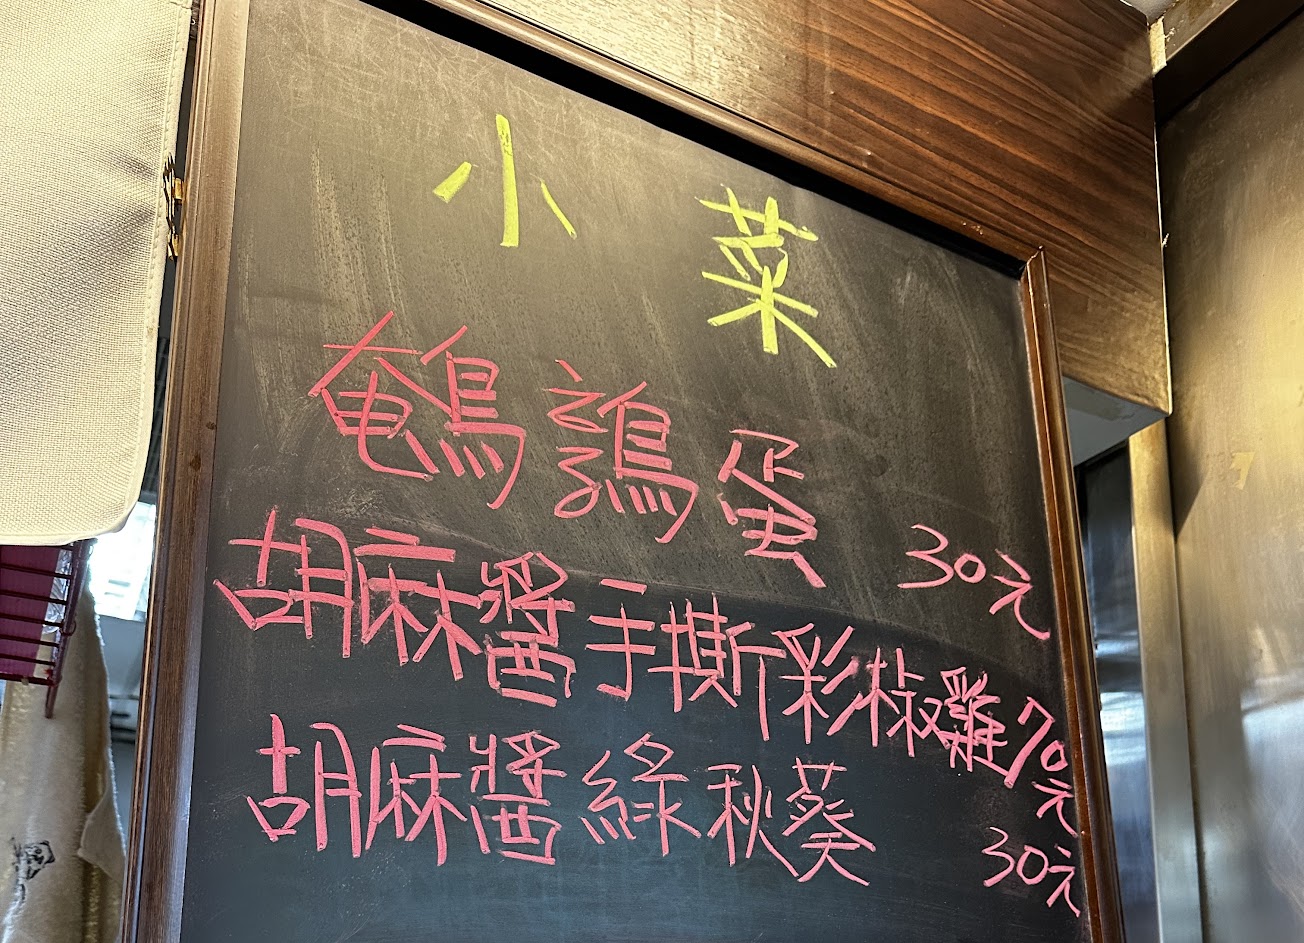 小菜
鵪鶉蛋 30元
胡麻醬手撕彩椒雞 70元
胡麻醬綠秋葵 30元